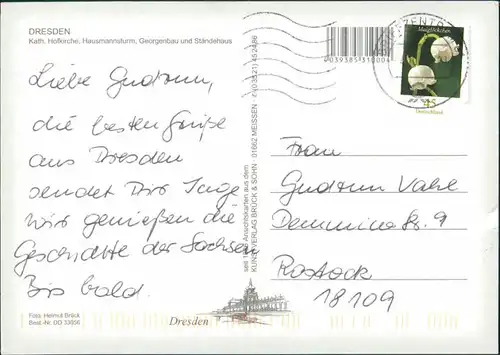 DRESDEN
Kath. Hofkirche, Hausmannsturm, Georgenbau und Ständehaus
Liebe Gudrun,
die besten Grüße
aus Dresden
sendet Dir Inge
Wir genießen die
Geschichte der Sachsen
Bis bald.
Foto: Helmut Brück
Best.-Nr. DD 33956
seit 1793 Ansichtskarten aus dem
KUNSTVERLAG BRÜCK & SOHN · 01662 MEISSEN · (03521) 45 24 66
Dresden
4 039385 310004
BRIEFZENTRUM
Maiglöckchen
45
Deutschland
Frau
Gudrun
Demminer Str. 9
Rostock
18109